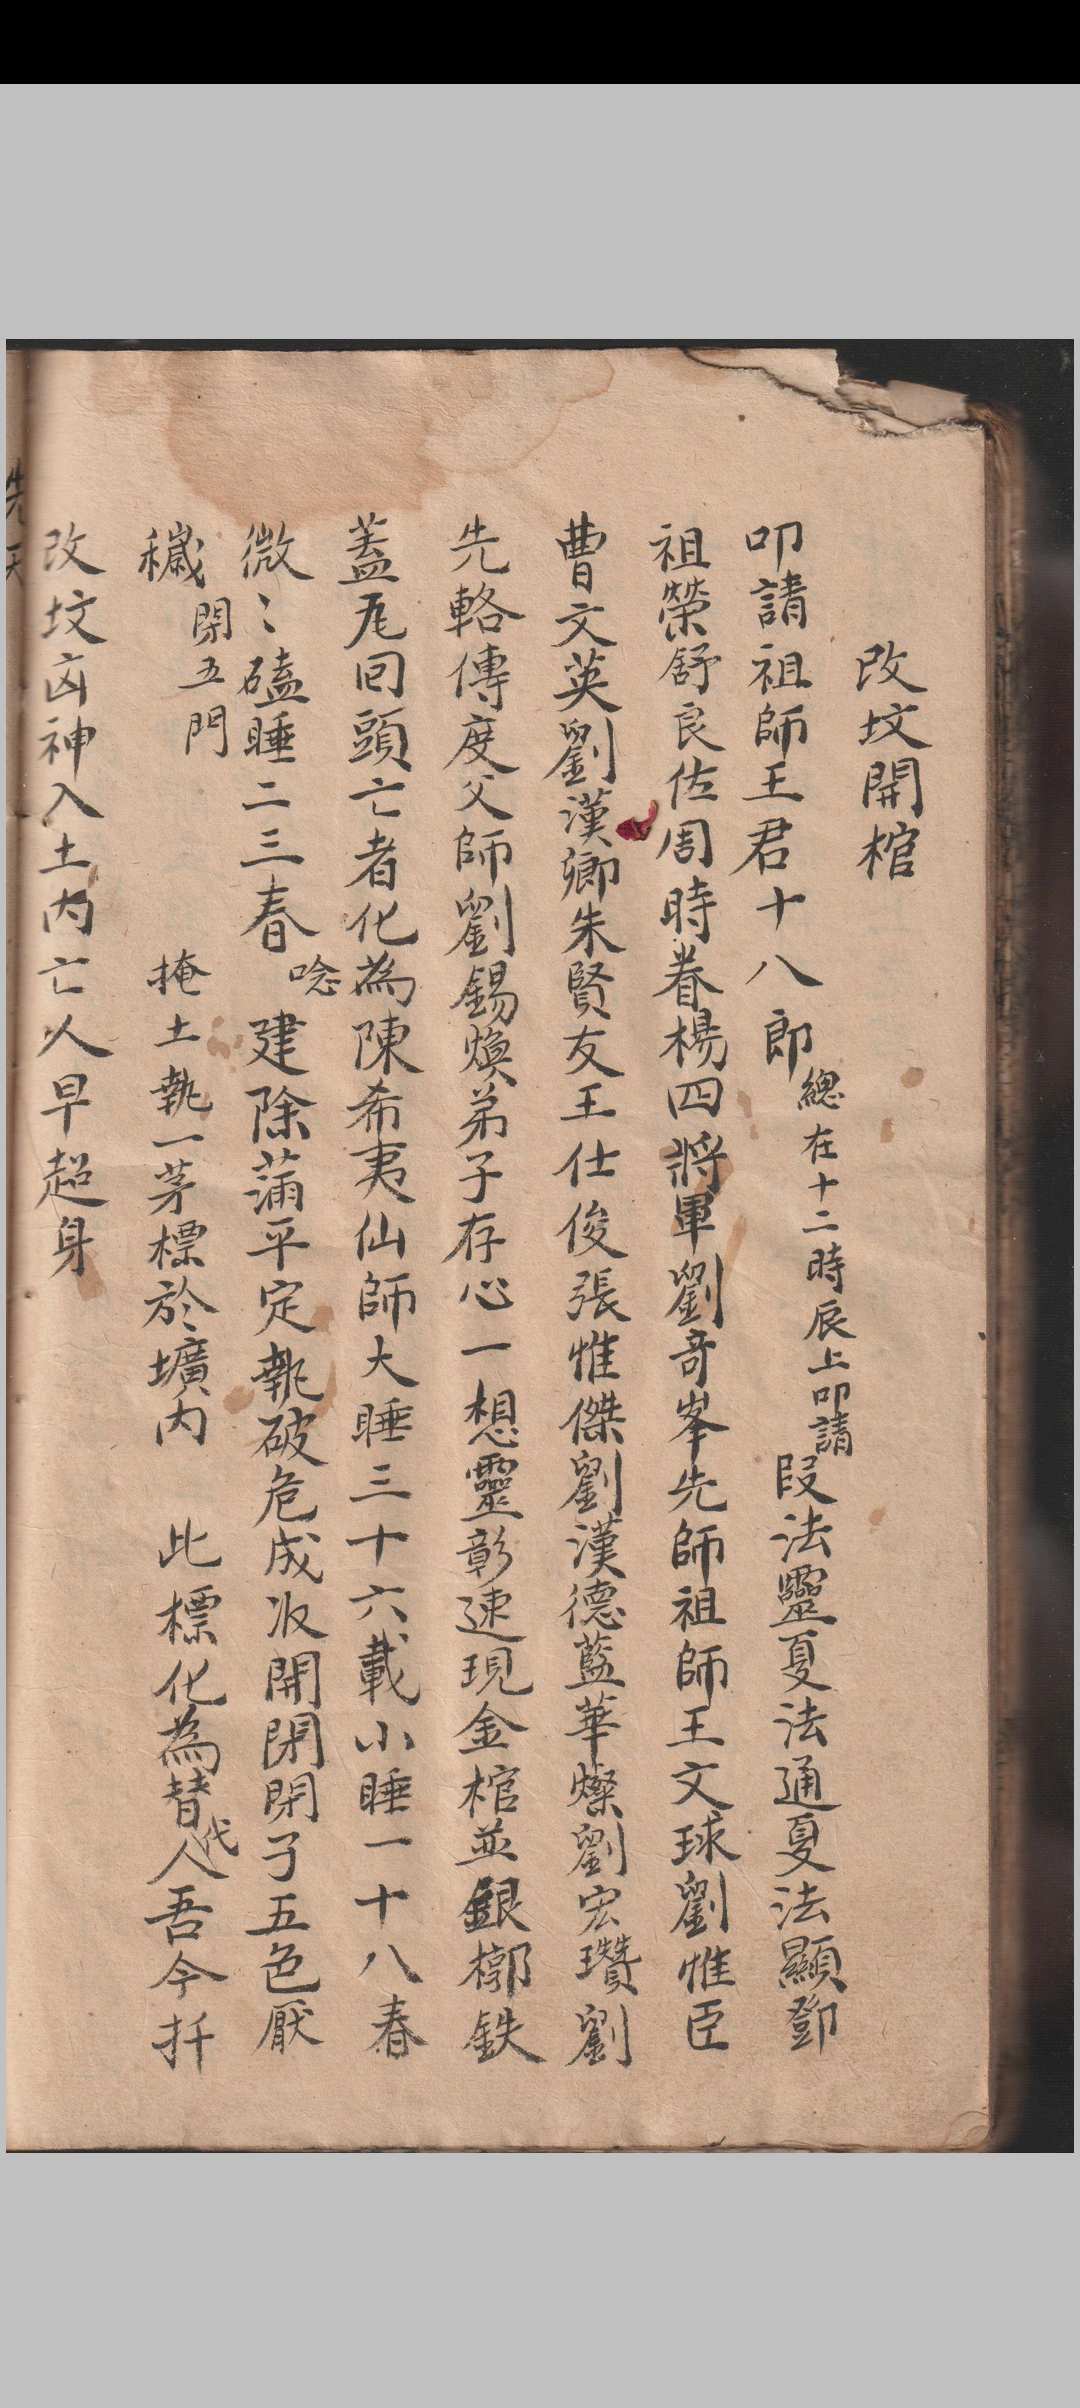 改坟開棺
叩請祖師王君十八郎 總在十二時辰上叩請 段法靈夏法通夏法顯鄧
祖榮舒良佐周時眷楊四將軍劉奇峯先師祖師王文球劉惟臣
曹文英劉漢卿朱賢友王仕俊張惟傑劉漢德藍華燦劉宏瓚劉
先輅傳度父師劉錫煥弟子存心一想靈彰速現金棺並銀槨鉄
蓋瓦回頭亡者化為陳希夷仙師大睡三十六載小睡一十八春
微〻磕睡二三春 唸建除滿平定執破危成収開閉閉了五色厭
穢 閉五門 掩土執一茅標於壙内 此標化為替代人吾今扦
改坟凶神入土内亡人早超身